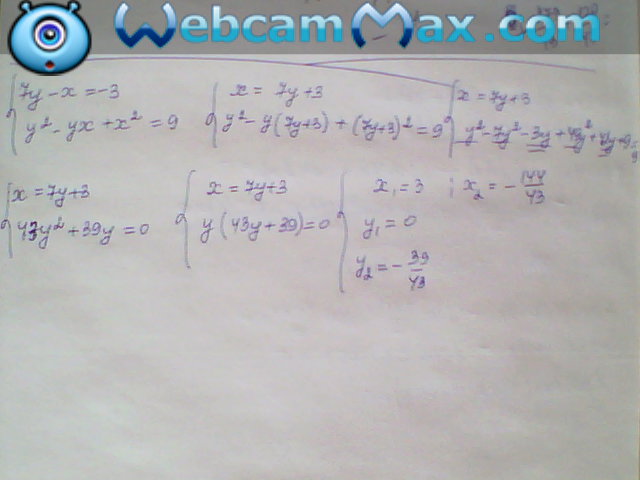 WebcamMax.com
7y - x = -3
y² - yx + x² = 9
x = 7y+3
y² - y(7y+3) + (7y+3)² = 9
x = 7y+3
y² - 7y² - 3y + 49y² + 42y + 9 = 9
x = 7y+3
43y² + 39y = 0
x = 7y+3
y(43y+39) = 0
x₁ = 3 ; x₂ = -144/43
y₁ = 0
y₂ = -39/43